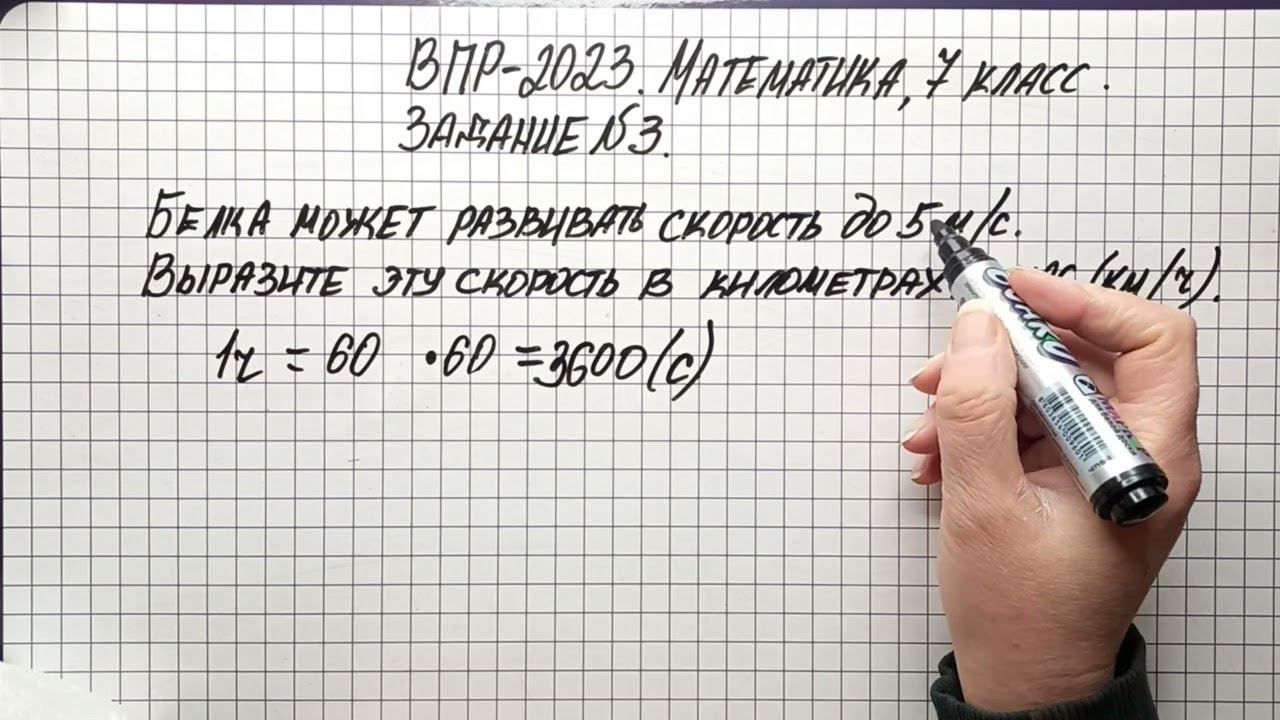 ВПР-2023. Математика, 7 класс.
Задание №3.
Белка может развивать скорость до 5 м/с.
Выразите эту скорость в километрах (км/ч).
1ч = 60 · 60 = 3600 (с)